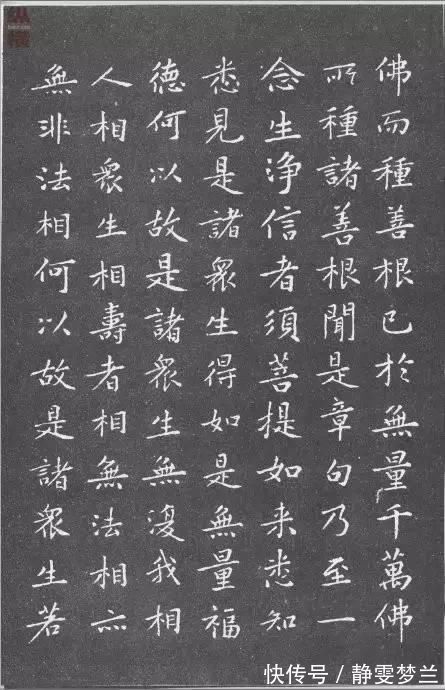 佛而種善根已於無量千萬佛
所種諸善根聞是章句乃至一
念生淨信者須菩提如来悉知
悉見是諸眾生得如是無量福
德何以故是諸眾生無復我相
人相眾生相壽者相無法相亦
無非法相何以故是諸眾生若
快传号/静雯梦兰